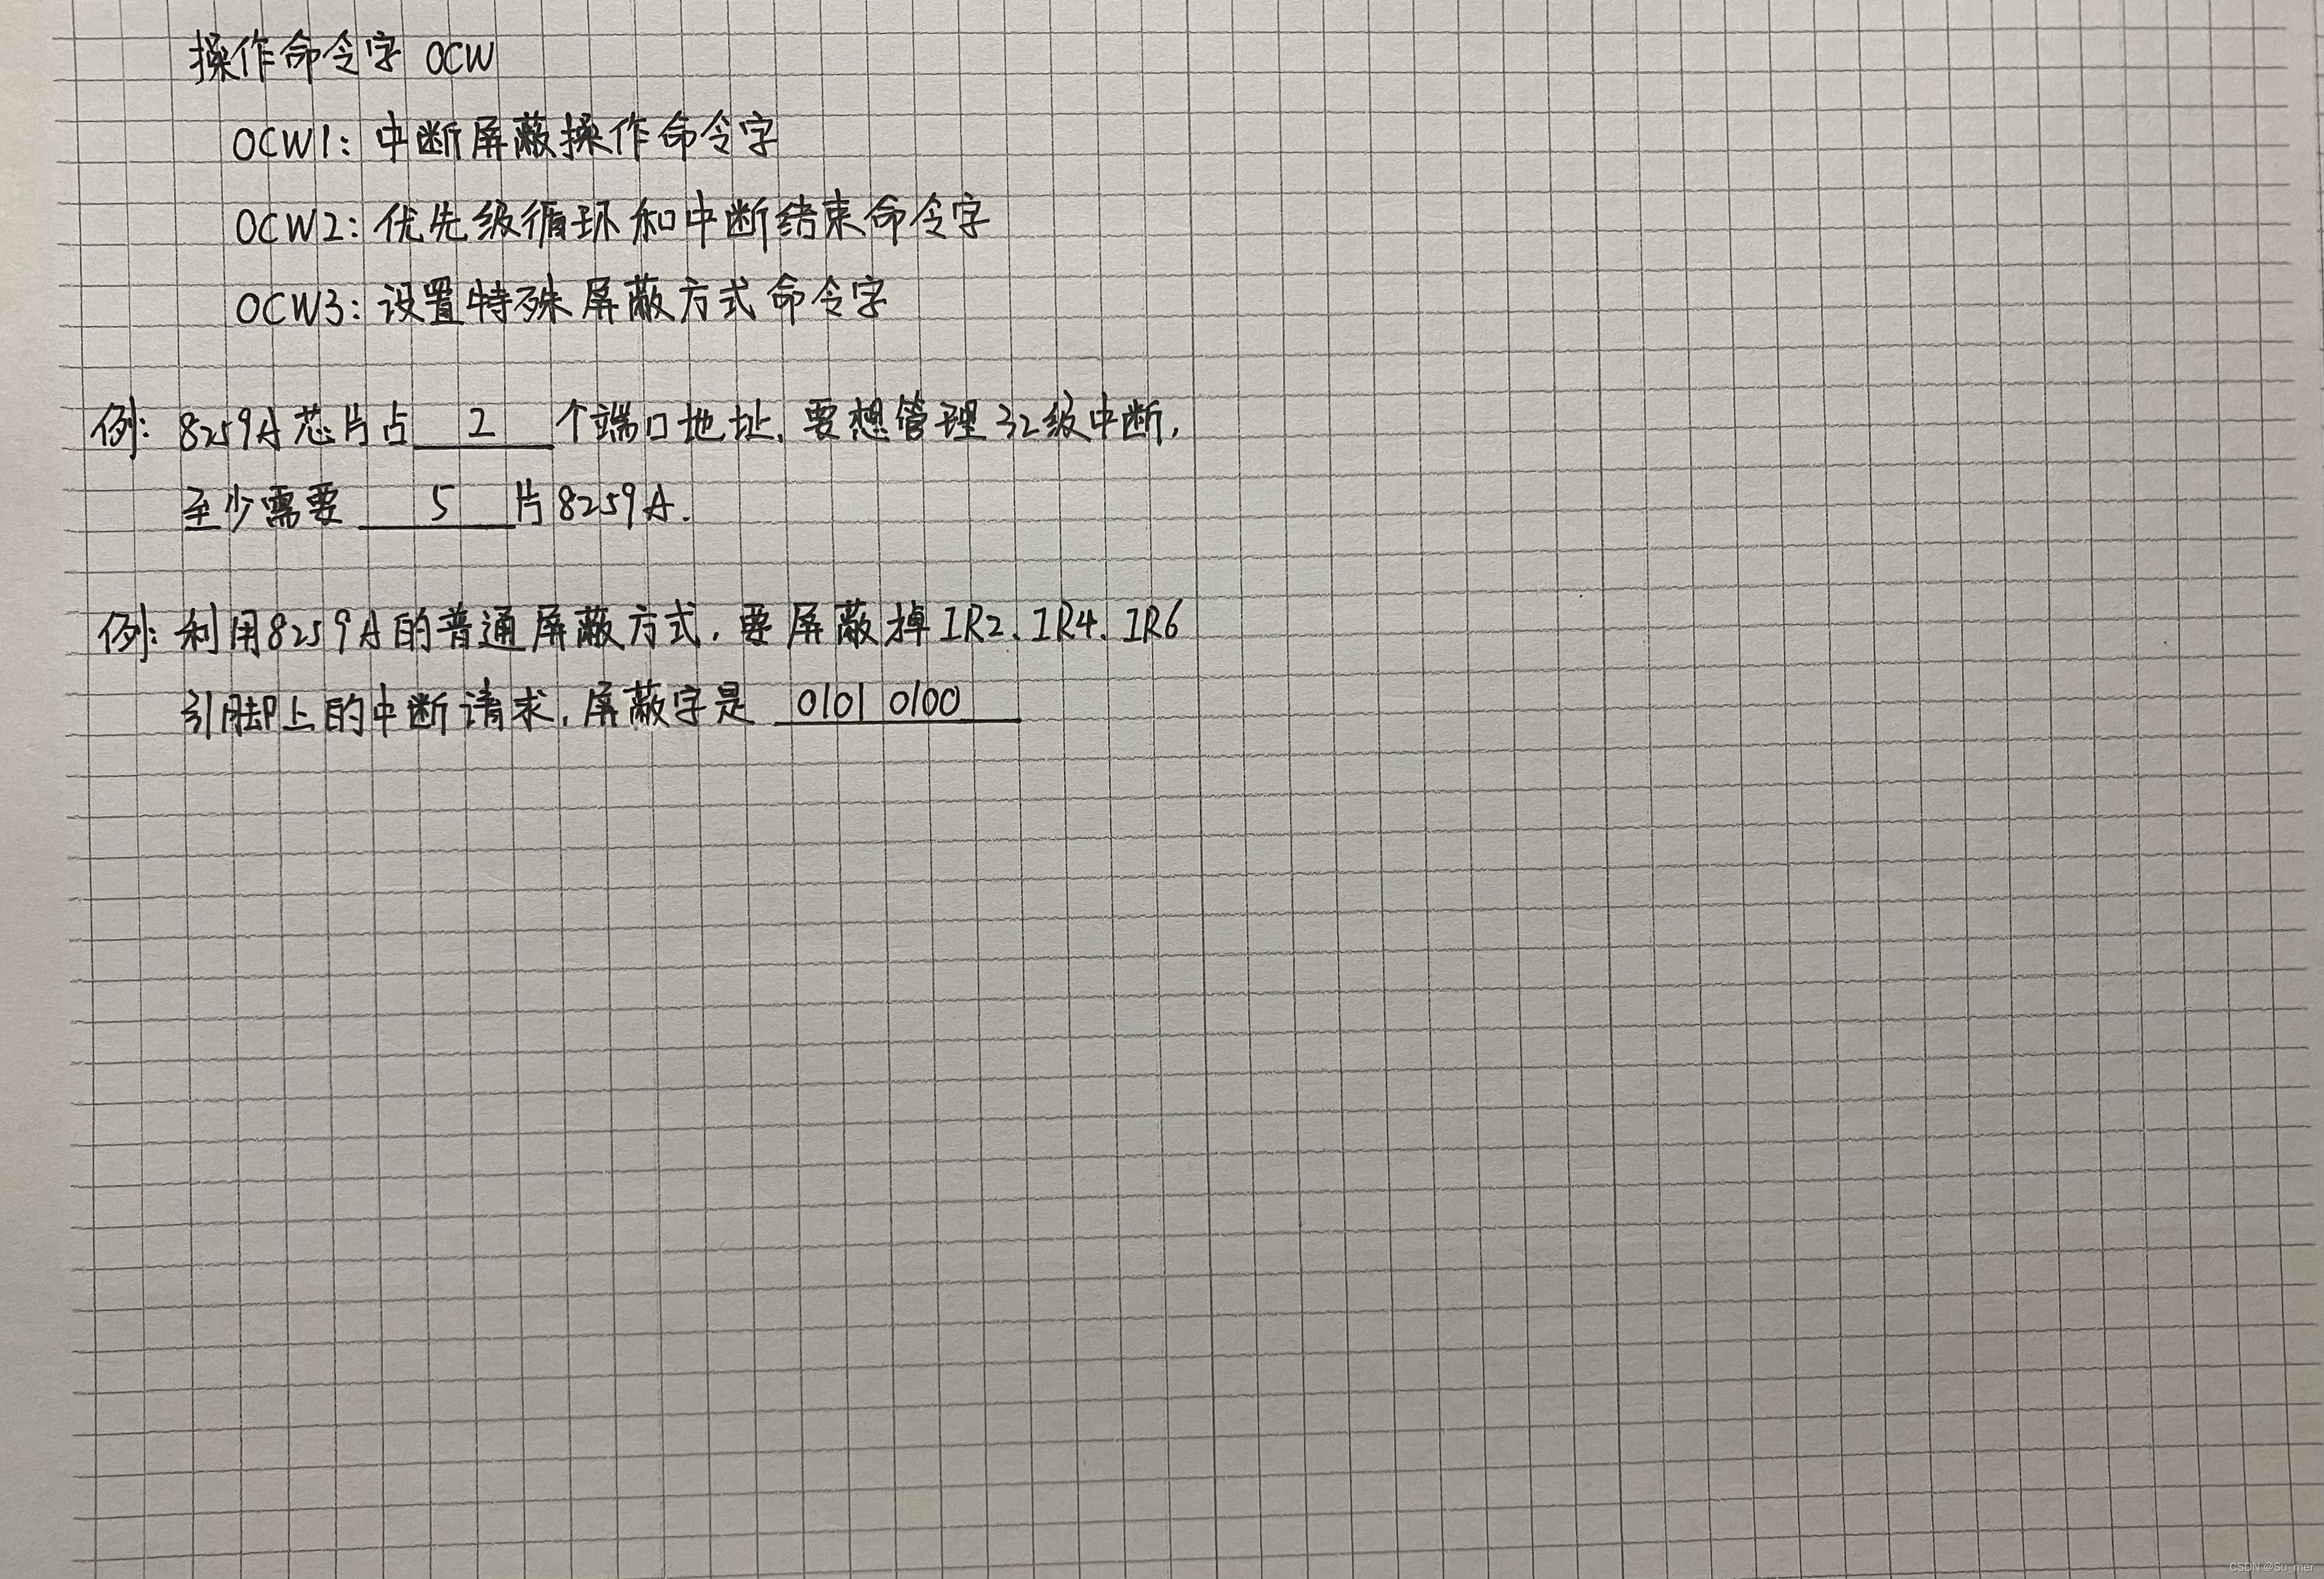 操作命令字 OCW
OCW1: 中断屏蔽操作命令字
OCW2: 优先级循环和中断结束命令字
OCW3: 设置特殊屏蔽方式命令字
例: 8259A芯片占 2 个端口地址, 要想管理32级中断,
至少需要 5 片8259A.
例: 利用8259A的普通屏蔽方式, 要屏蔽掉IR2、IR4、IR6
引脚上的中断请求, 屏蔽字是 0101 0100
CSDN @Su_mer